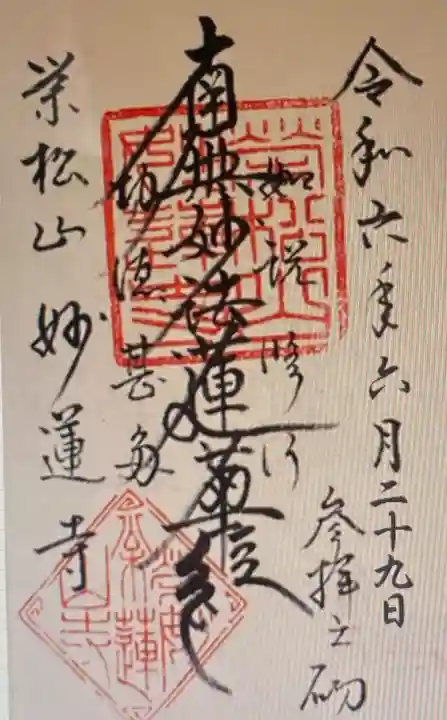 令和六年六月二十九日
参拝之砌
如説修行
南無妙法蓮華経
功徳甚多
栄松山 妙蓮寺